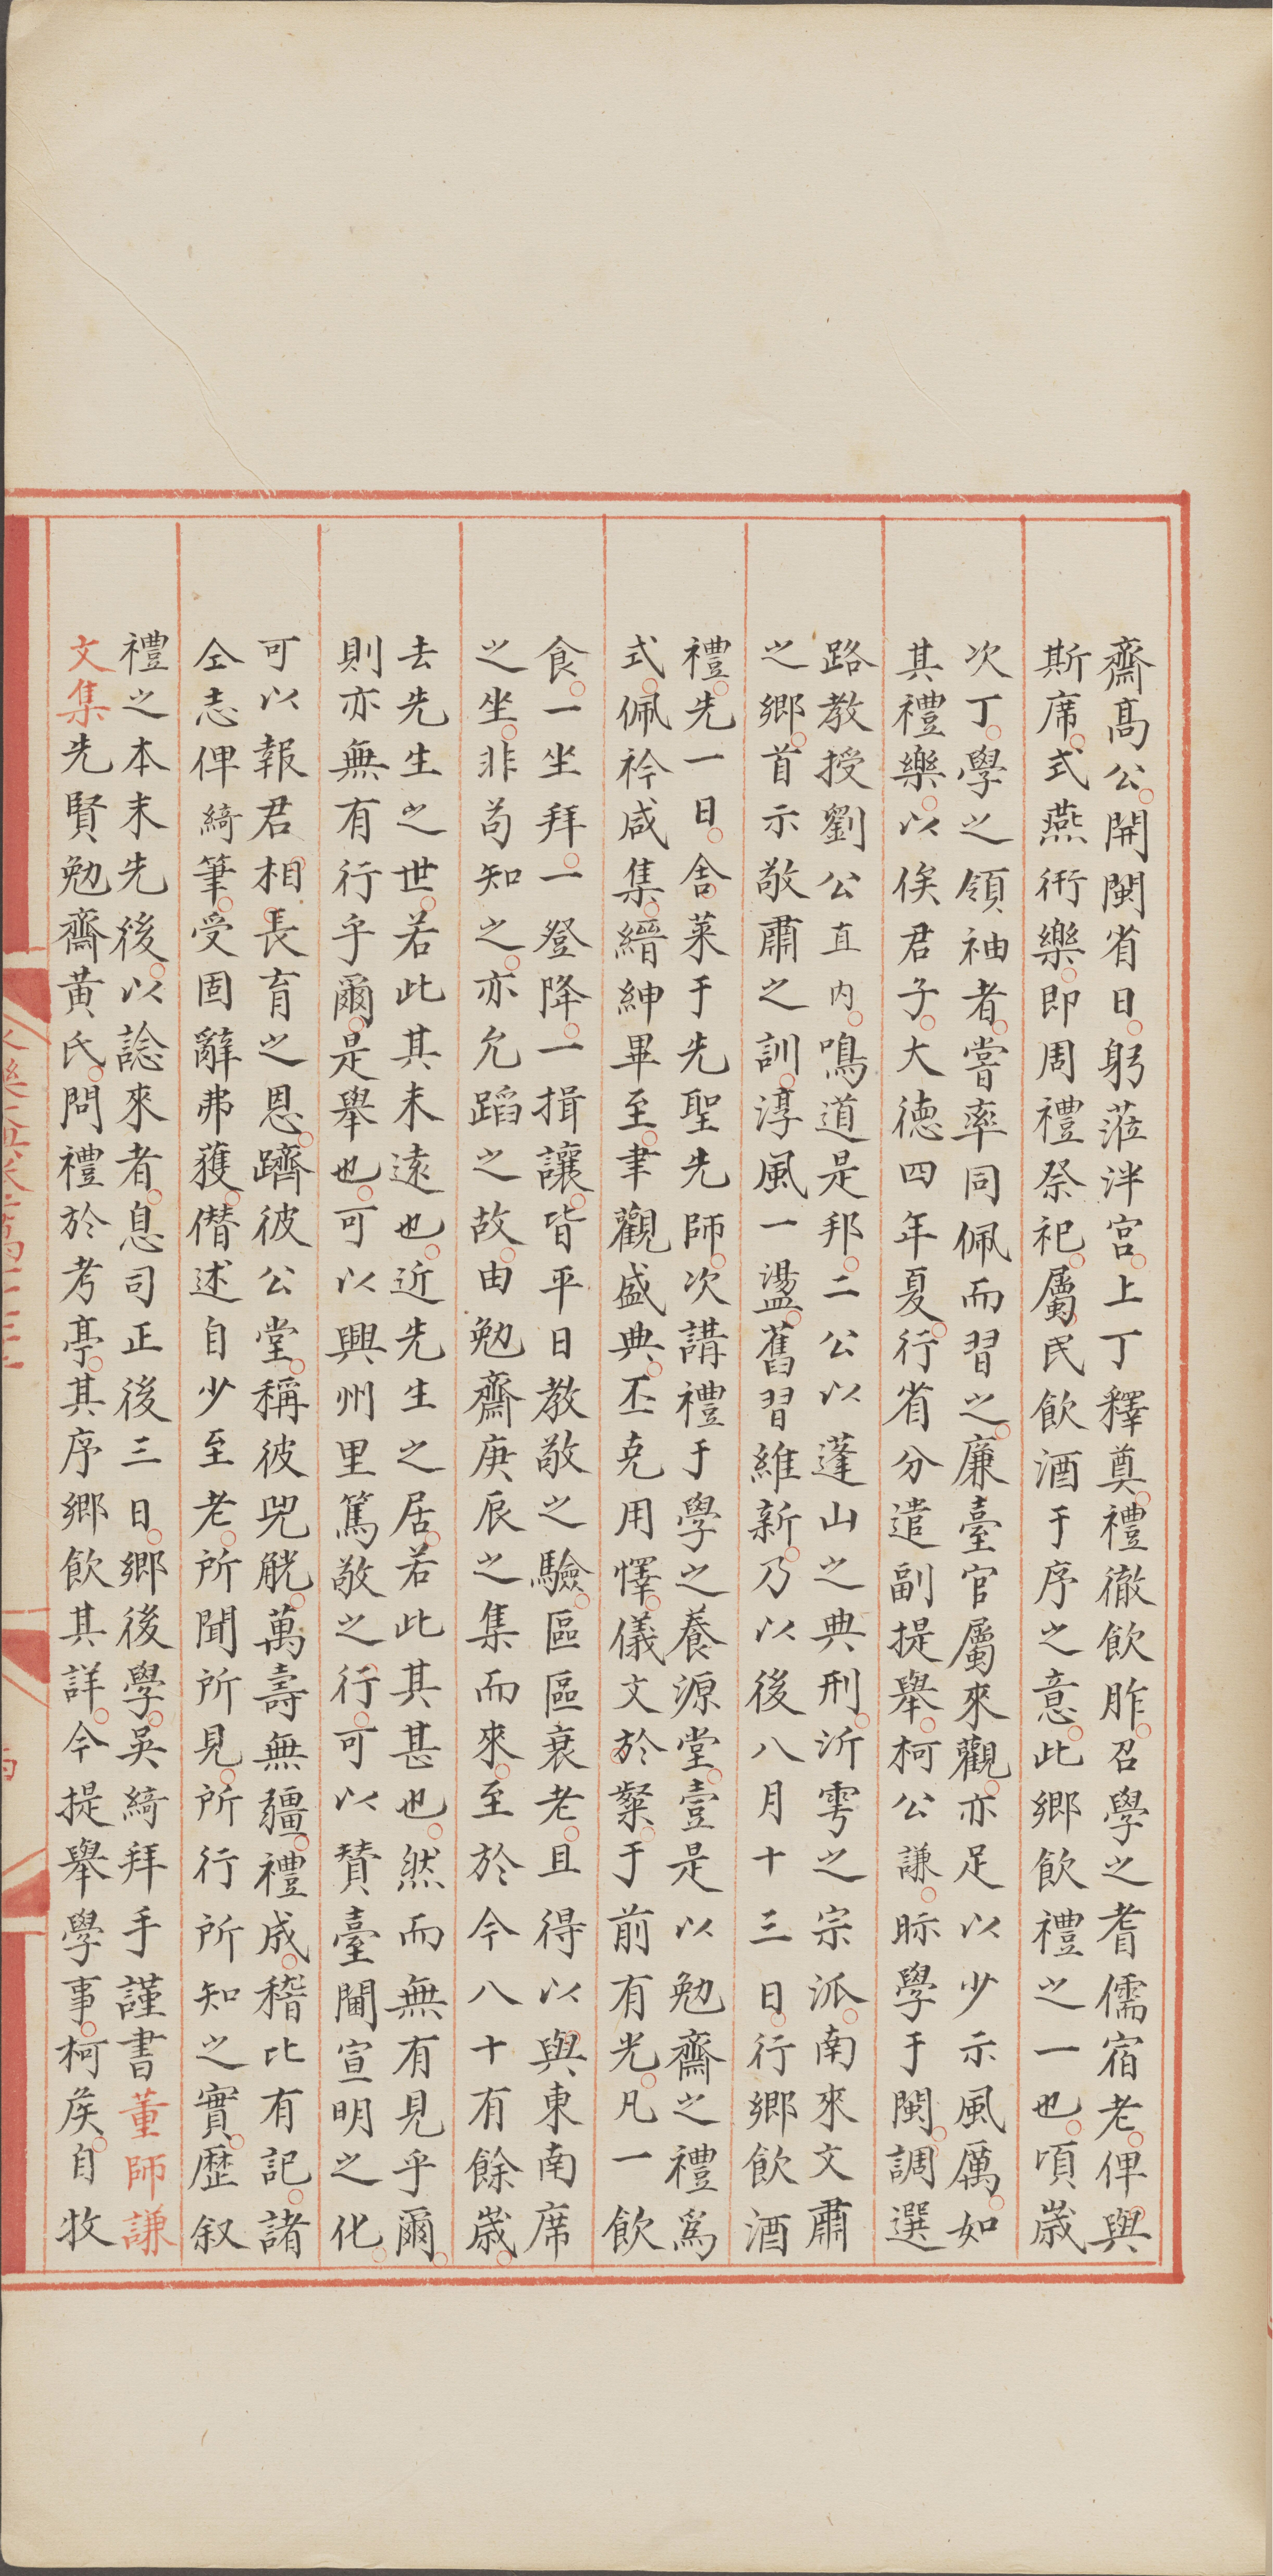 齋高公開閩省日躬蒞泮宮上丁釋奠禮徹飲胙召學之耆儒宿老俾與
斯席式燕衎樂即周禮祭祀屬民飲酒于序之意此鄉飲禮之一也頃歲
次丁學之領袖者嘗率同佩而習之廉臺官屬來觀亦足以少示風厲如
其禮樂以俟君子大德四年夏行省分遣副提舉柯公謙眎學于閩調選
路教授劉公直內鳴道是邦二公以蓬山之典刑沂雩之宗派南來文肅
之鄉首示敬肅之訓淳風一盪舊習維新乃以後八月十三日行鄉飲酒
禮先一日舍菜于先聖先師次講禮于學之養源堂壹是以勉齋之禮爲
式佩衿咸集縉紳畢至聿觀盛典丕克用懌儀文於粲于前有光凡一飲
食一坐拜一登降一揖讓皆平日教敬之驗區區衰老且得以與東南席
之坐非苟知之亦允蹈之故由勉齋庚辰之集而來至於今八十有餘歲
去先生之世若此其未遠也近先生之居若此其甚也然而無有見乎爾
則亦無有行乎爾是舉也可以興州里篤敬之行可以贊臺閫宣明之化
可以報君相長育之恩躋彼公堂稱彼兕觥萬壽無疆禮成稽比有記諸
仝志俾綺筆受固辭弗獲僭述自少至老所聞所見所行所知之實歷叙
禮之本末先後以諗來者息司正後三日鄉後學吳綺拜手謹書董師謙
文集先賢勉齋黃氏問禮於考亭其序鄉飲其詳今提舉學事柯侯自牧